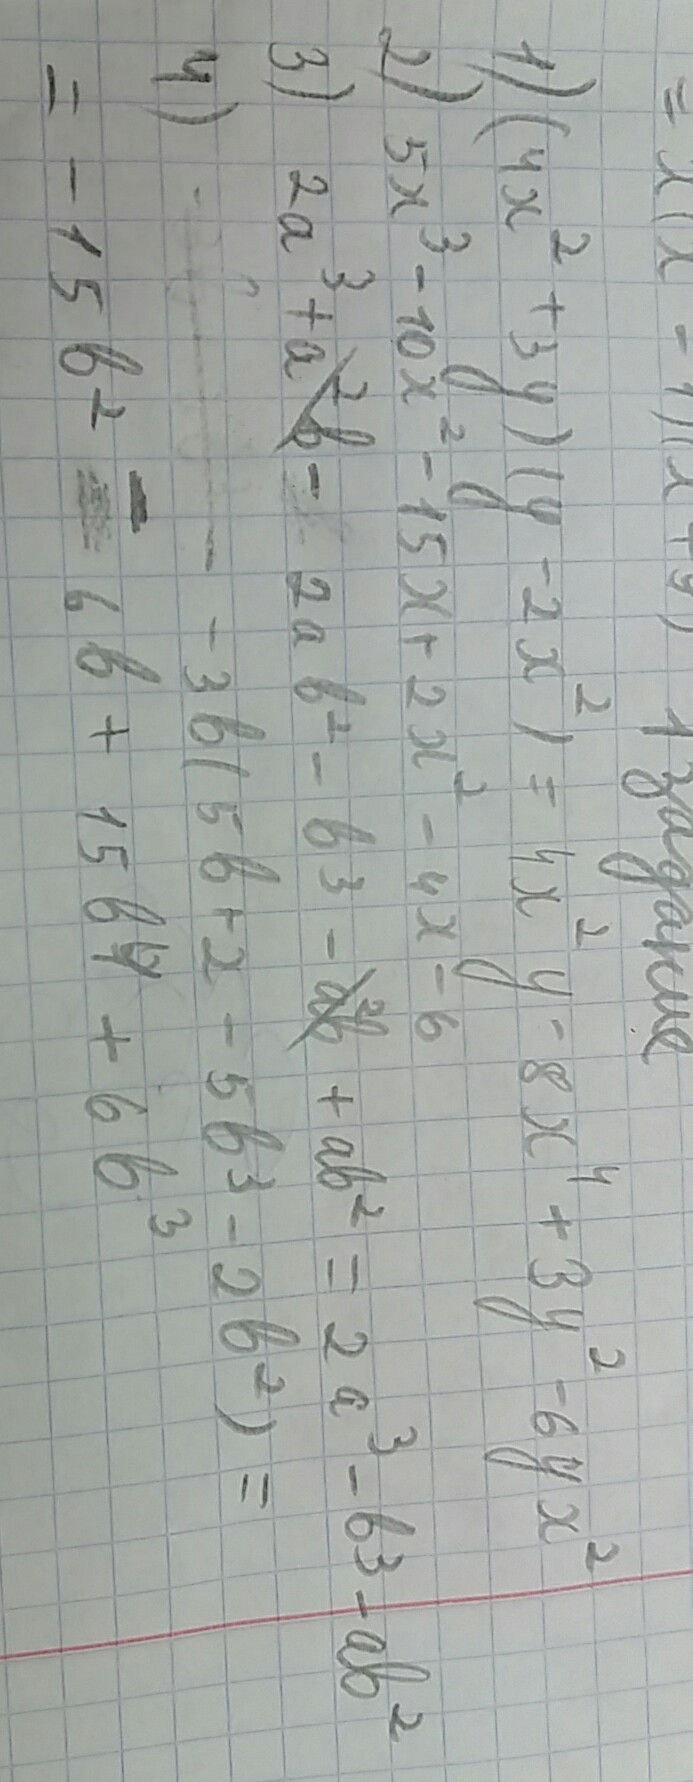 = x(x - y)(x + y) 1 задание
1) (4x² + 3y)(y - 2x²) = 4x²y - 8x⁴ + 3y² - 6yx²
2) 5x³ - 10x² - 15x + 2x² - 4x - 6
3) 2a³ + a²b - 2ab² - b³ - a²b + ab² = 2a³ - b³ - ab²
4) - -3b(5b+2 - 5b³ - 2b²) =
= -15b² - 6b + 15b⁴ + 6b³